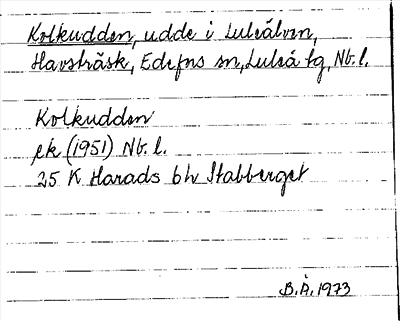 Kolkudden, udde i Luleälven,
Havsträsk, Edefors sn, Luleå tg, Nb. l.
Kolkudden
ek (1951) Nb. l.
25 K Harads bl Stabberget
B. Å. 1973